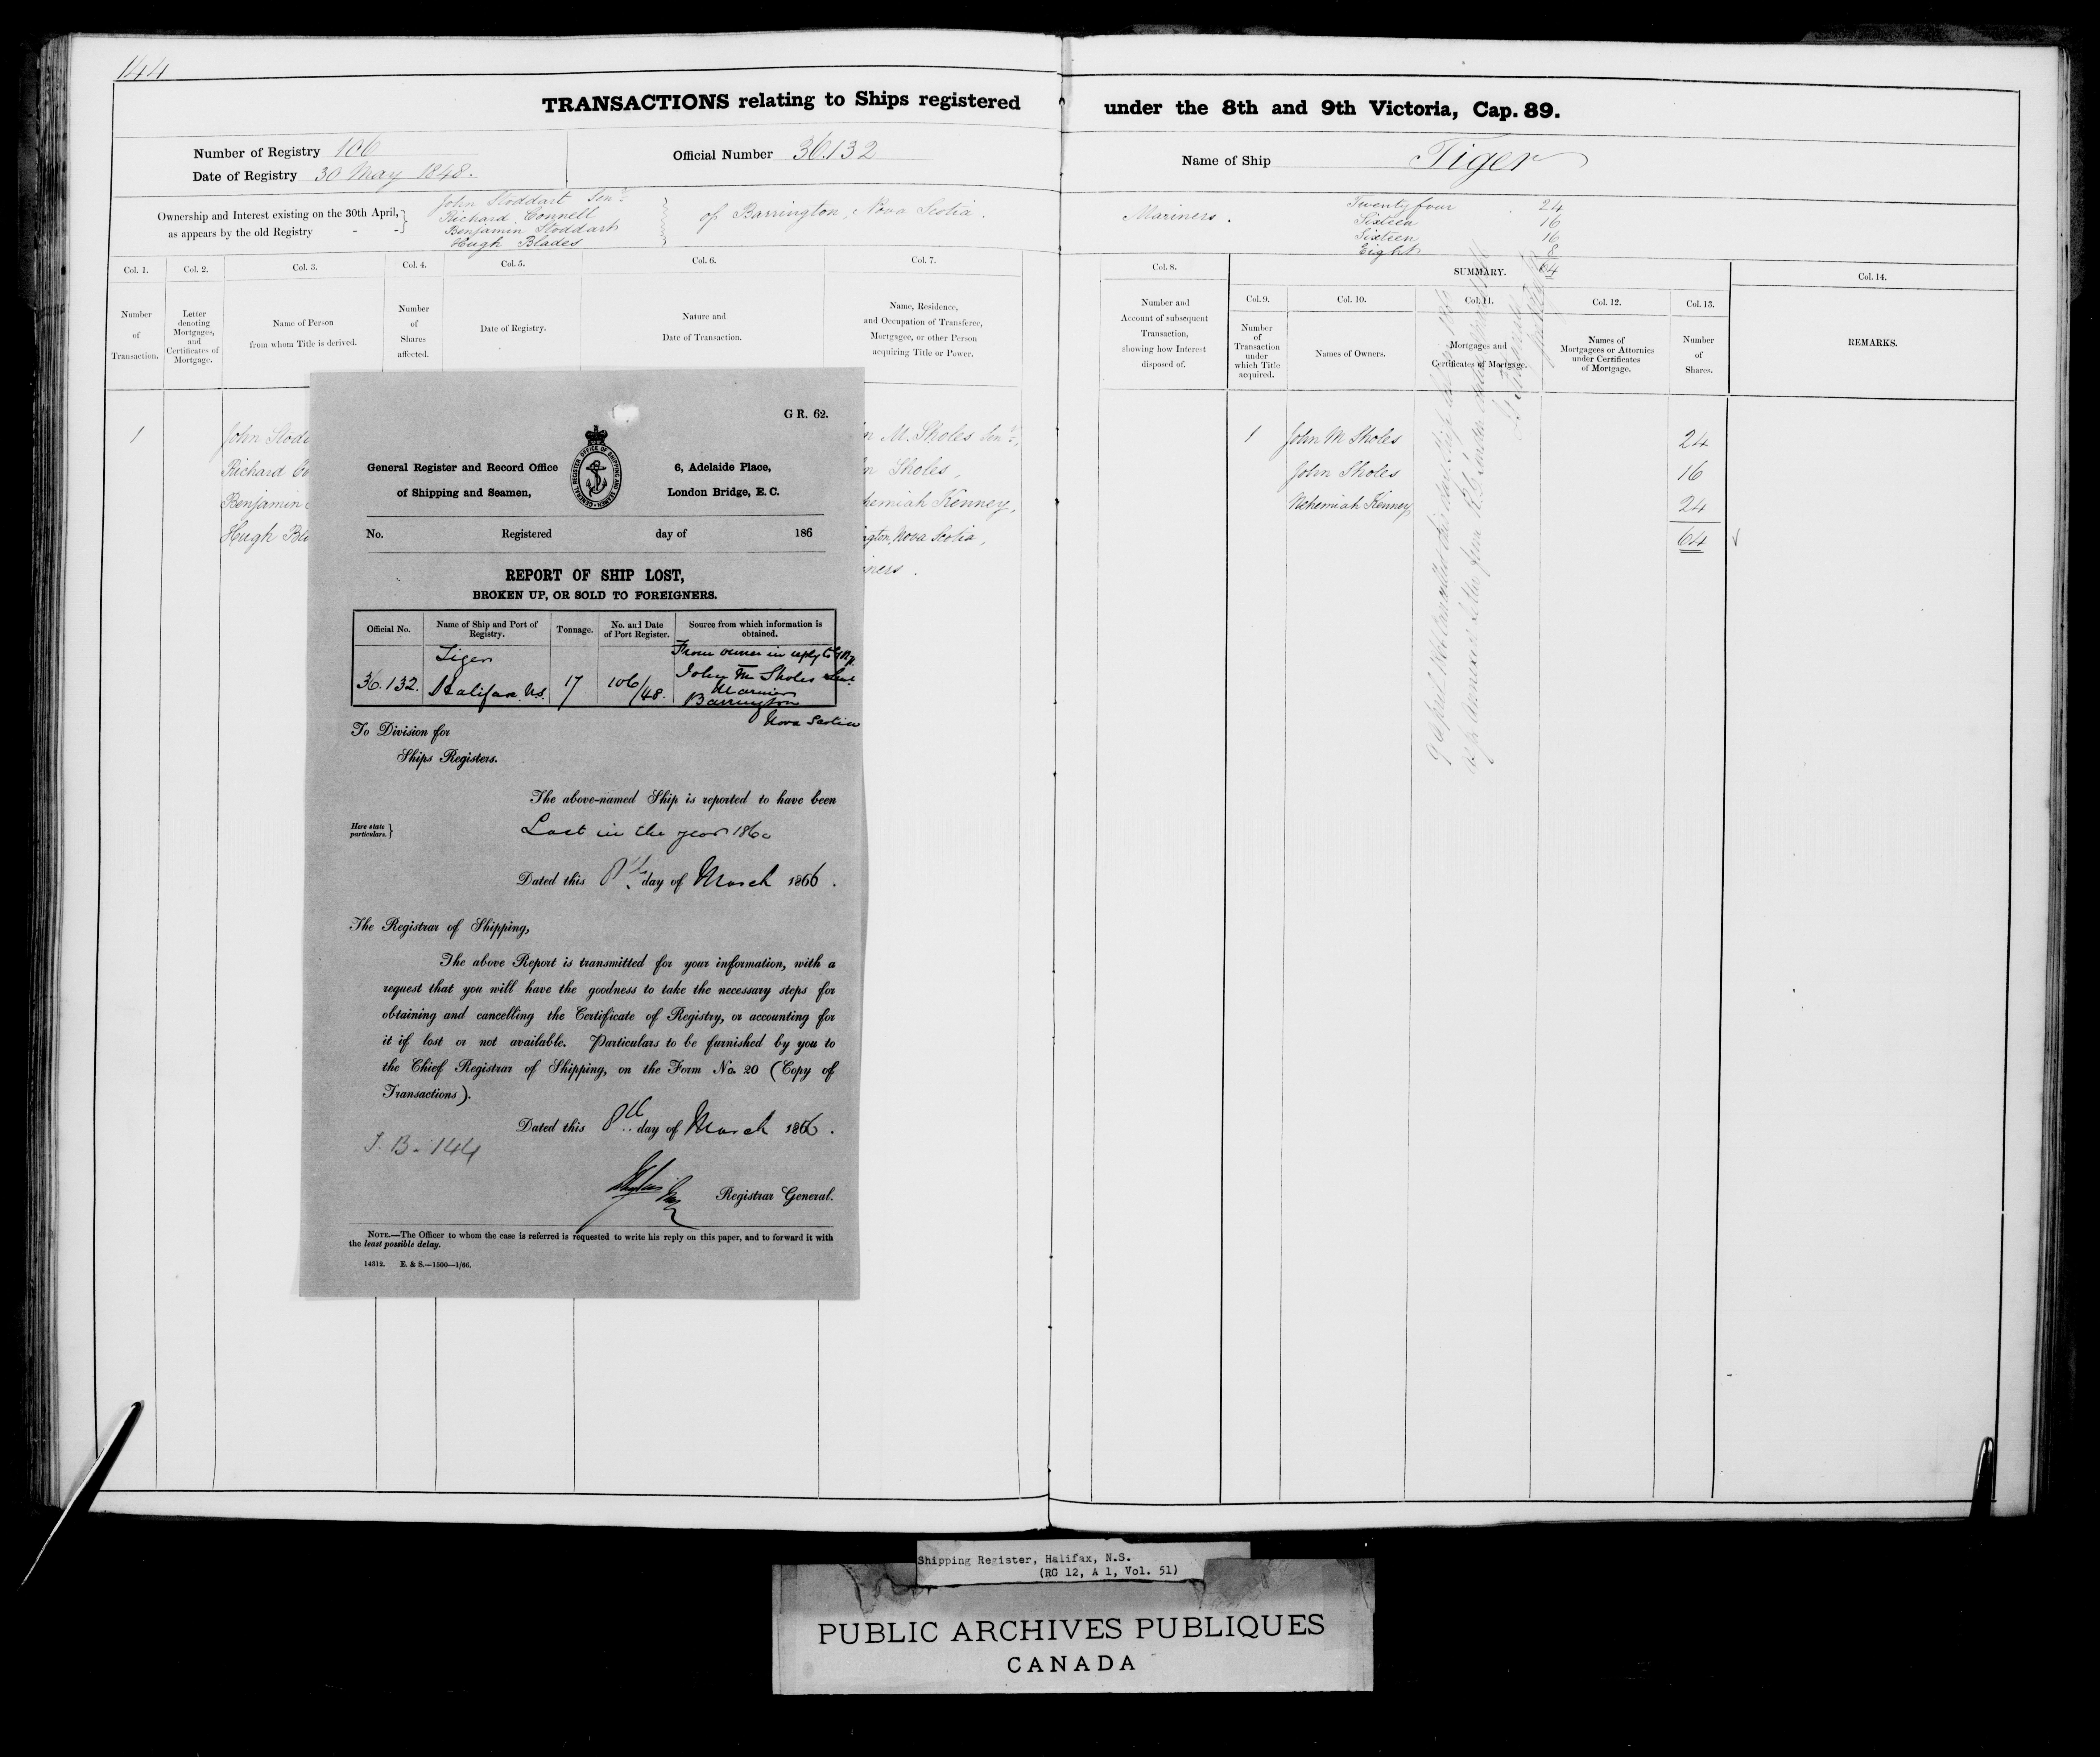 144
TRANSACTIONS relating to Ships registered under the 8th and 9th Victoria, Cap. 89.
Number of Registry 106
Date of Registry 30 May 1848.
Official Number 36.132
Name of Ship Tiger
Ownership and Interest existing on the 30th April, as appears by the old Registry - -
John Stoddart Senr
Richard Connell
Benjamin Stoddart
Hugh Blades
of Barrington, Nova Scotia.
Mariners.
Twenty four 24
Sixteen 16
Sixteen 16
Eight 8
64
Col. 1. Col. 2. Col. 3. Col. 4. Col. 5. Col. 6. Col. 7.
Number of Transaction.
Letter denoting Mortgages, and Certificates of Mortgage.
Name of Person from whom Title is derived.
Number of Shares affected.
Date of Registry.
Nature and Date of Transaction.
Name, Residence, and Occupation of Transferee, Mortgagee, or other Person acquiring Title or Power.
Col. 8. SUMMARY. Col. 14.
Col. 9. Col. 10. Col. 11. Col. 12. Col. 13.
Number and Account of subsequent Transaction, showing how Interest disposed of.
Number of Transaction under which Title acquired.
Names of Owners.
Mortgages and Certificates of Mortgage.
Names of Mortgagees or Attornies under Certificates of Mortgage.
Number of Shares.
REMARKS.
1 John Stod
Richard Co
Benjamin
Hugh Bla
n M. Sholes Senr,
n Sholes,
hemiah Kenney,
ngton, Nova Scotia,
ners.
1 John M Sholes 24
John Sholes 16
Nehemiah Kenney 24
64
9 April 186
G R. 62.
General Register and Record Office
of Shipping and Seamen,
GENERAL REGISTER OFFICE OF SHIPPING AND SEAMEN
6, Adelaide Place,
London Bridge, E. C.
No. Registered day of 186
REPORT OF SHIP LOST,
BROKEN UP, OR SOLD TO FOREIGNERS.
Official No. Name of Ship and Port of Registry. Tonnage. No. and Date of Port Register. Source from which information is obtained.
36.132. Tiger Halifax N.S. 17 106/48.
From owner in reply to
John M Sholes Senr
Mariner
Barrington
Nova Scotia
To Division for
Ships Registers.
The above-named Ship is reported to have been
Here state particulars. } Lost in the year 1860
Dated this 8th day of March 1866.
The Registrar of Shipping,
The above Report is transmitted for your information, with a
request that you will have the goodness to take the necessary steps for
obtaining and cancelling the Certificate of Registry, or accounting for
it if lost or not available. Particulars to be furnished by you to
the Chief Registrar of Shipping, on the Form No. 20 (Copy of
Transactions).
Dated this 8th day of March 1866.
J. B. 144
Registrar General.
NOTE.—The Officer to whom the case is referred is requested to write his reply on this paper, and to forward it with
the least possible delay.
14312. E. & S.—1500—1/66.
Shipping Register, Halifax, N.S.
(RG 12, A 1, Vol. 51)
PUBLIC ARCHIVES PUBLIQUES
CANADA